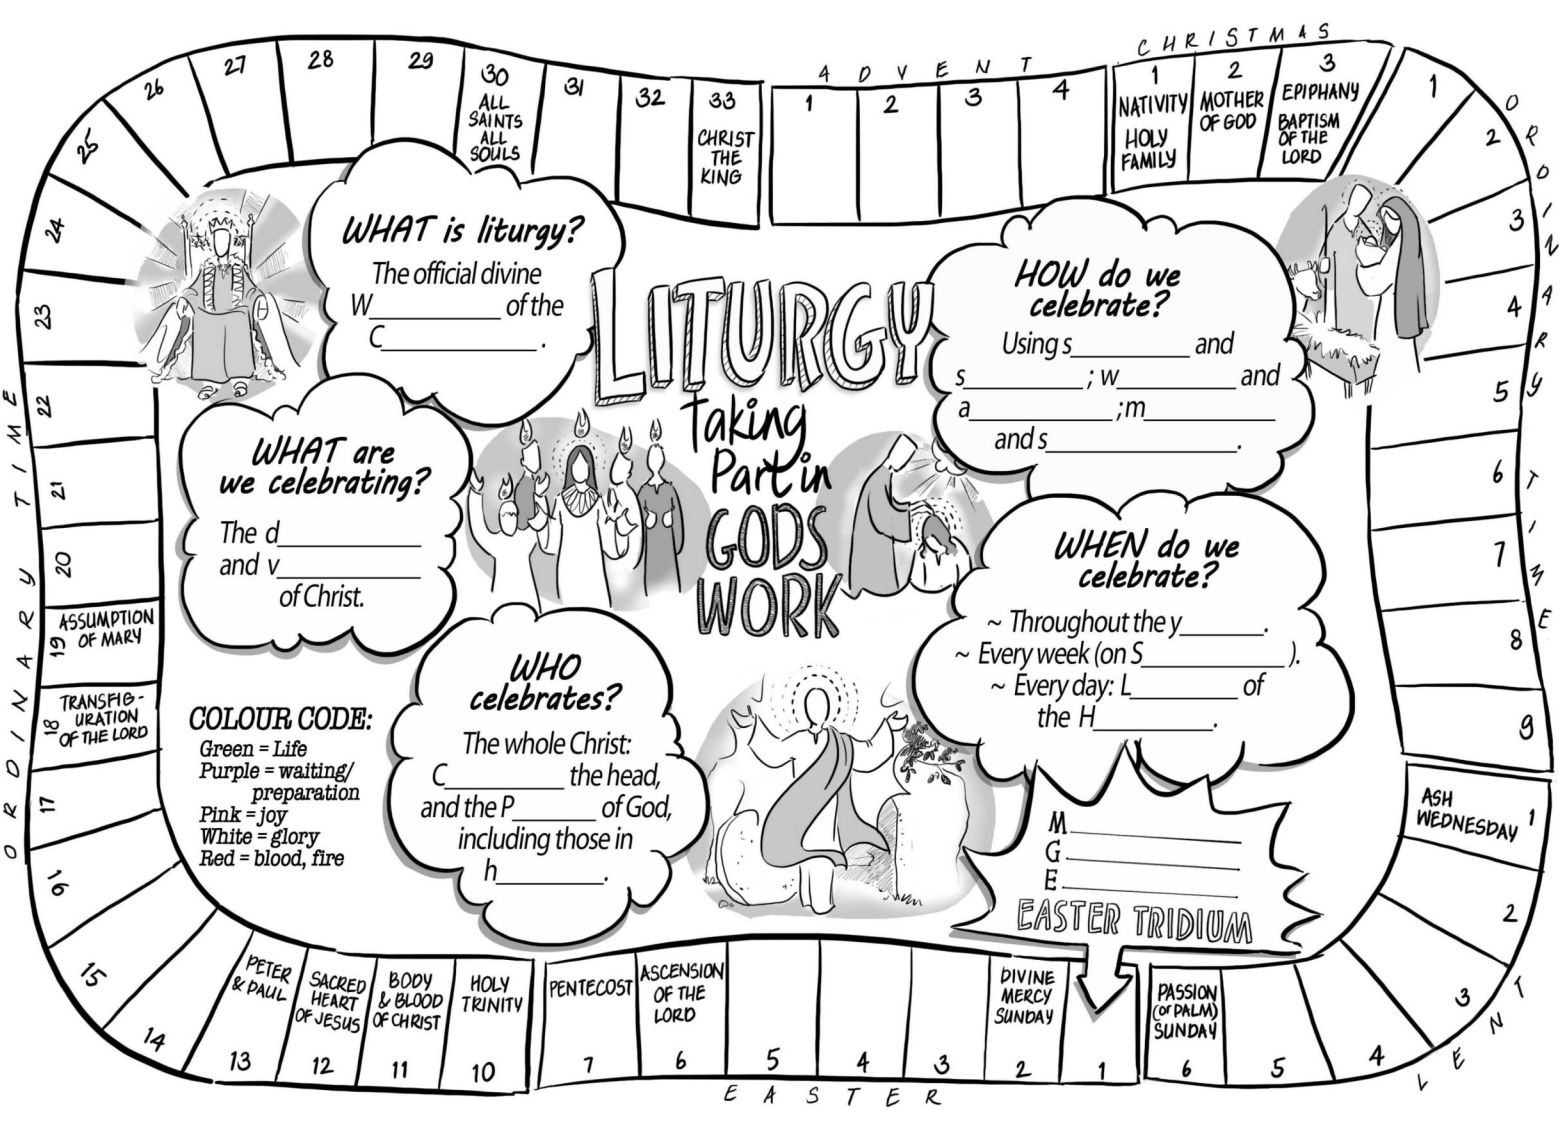 ADVENT
1
2
3
4
CHRISTMAS
1
NATIVITY
HOLY
FAMILY
2
MOTHER
OF GOD
3
EPIPHANY
BAPTISM
OF THE
LORD
ORDINARY TIME
1
2
3
4
5
6
7
8
9
LENT
ASH
WEDNESDAY 1
2
3
4
5
PASSION
(or PALM)
SUNDAY
6
EASTER
1
DIVINE
MERCY
SUNDAY
2
3
4
5
ASCENSION
OF THE
LORD
6
PENTECOST
7
HOLY
TRINITY
10
BODY
& BLOOD
OF CHRIST
11
SACRED
HEART
OF JESUS
12
PETER
& PAUL
13
14
15
16
17
ORDINARY TIME
TRANSFIG-
URATION
OF THE LORD
18
ASSUMPTION
OF MARY
19
20
21
22
23
24
25
26
27
28
29
30
ALL
SAINTS
ALL
SOULS
31
32
33
CHRIST
THE
KING
LITURGY
Taking
Part in
GODS
WORK
WHAT is liturgy?
The official divine
W____________ of the
C______________ .
WHAT are
we celebrating?
The d______________
and v______________
of Christ.
WHO
celebrates?
The whole Christ:
C____________ the head,
and the P________ of God,
including those in
h__________.
HOW do we
celebrate?
Using s____________ and
s____________ ; w____________ and
a______________ ;m_____________
and s___________________ .
WHEN do we
celebrate?
~ Throughout the y________.
~ Every week (on S______________ ).
~ Every day: L__________ of
the H____________.
M________________
G________________
E________________
EASTER TRIDIUM
COLOUR CODE:
Green = Life
Purple = waiting/
preparation
Pink = joy
White = glory
Red = blood, fire